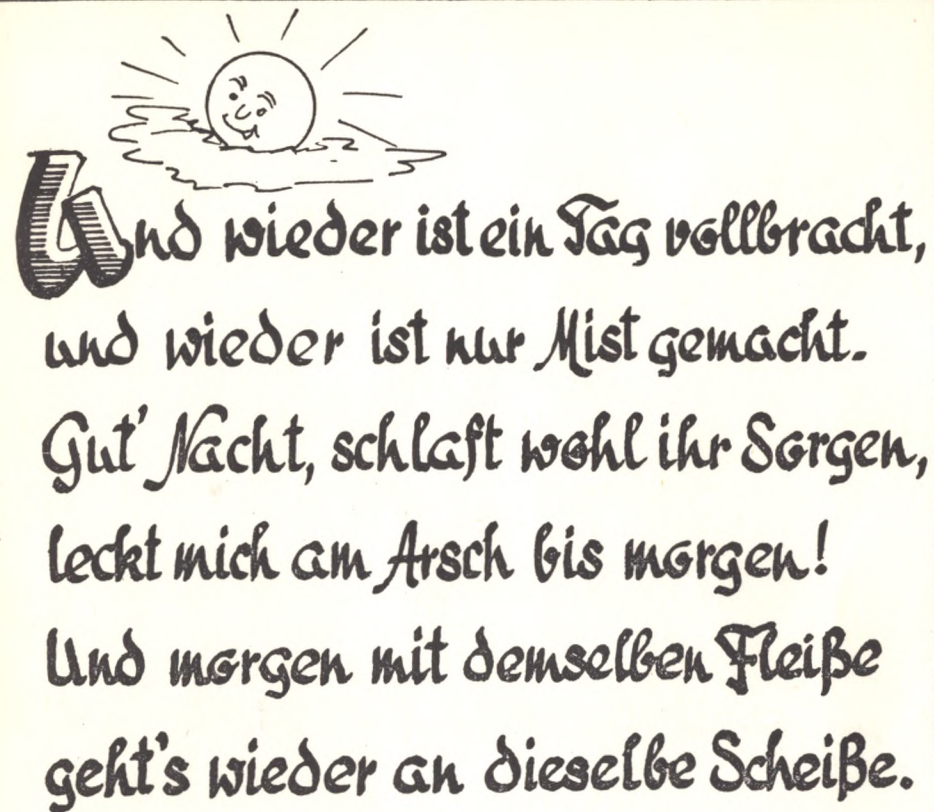 Und wieder ist ein Tag vollbracht,
und wieder ist nur Mist gemacht.
Gut' Nacht, schlaft wohl ihr Sorgen,
leckt mich am Arsch bis morgen!
Und morgen mit demselben Fleiße
geht's wieder an dieselbe Scheiße.